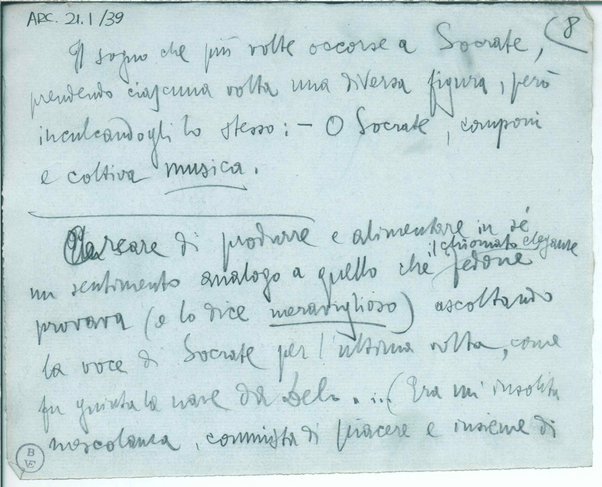 ARC. 21.1/39
8
Il sogno che più volte occorse a Socrate,
prendendo ciascuna volta una diversa figura, però
inculcandogli lo stesso: — O Socrate, componi
e coltiva musica.
Cercare di produrre e alimentare in sé
un sentimento analogo a quello che il chiomato elegante Fedone
provava (e lo dice meraviglioso) ascoltando
la voce di Socrate per l'ultima volta, come
fu giunta la nave da Delo... (Era un'insolita
mescolanza, commista di piacere e insieme di
B
VE